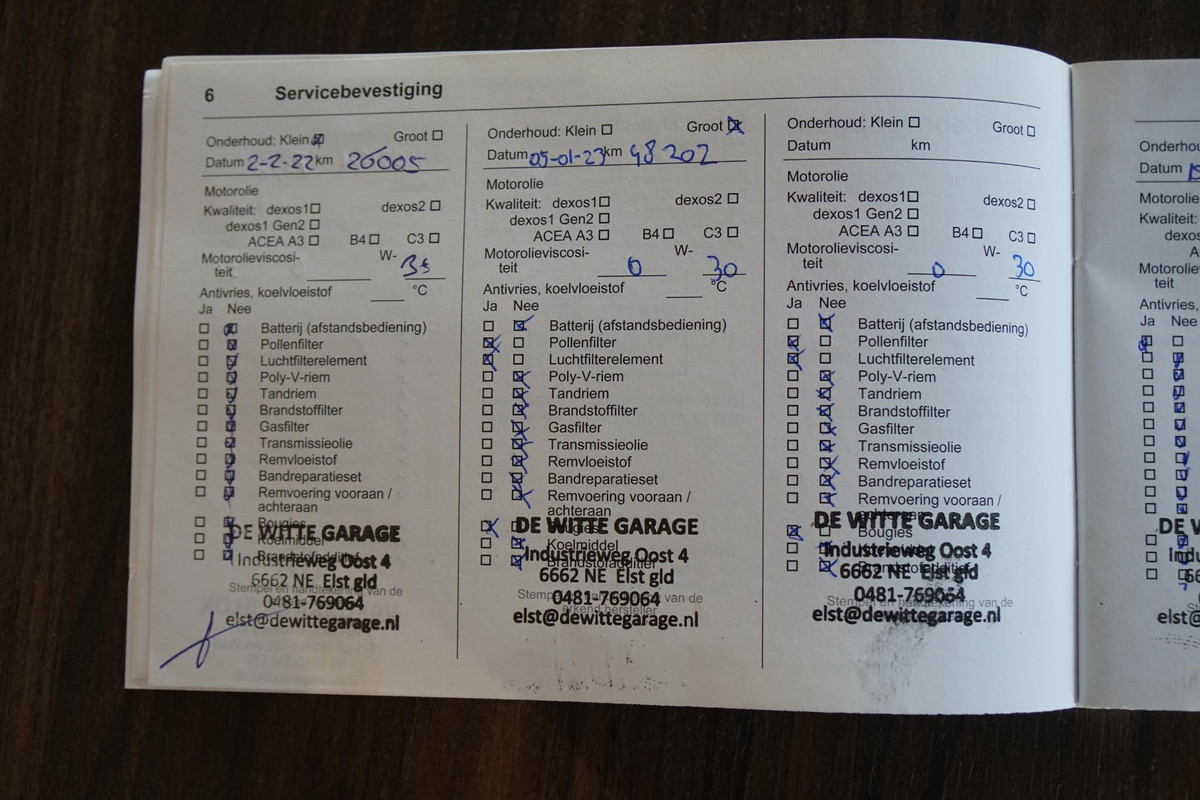 6 Servicebevestiging
Onderhoud: Klein Groot
Datum 2-2-22 km 26005
Motorolie
Kwaliteit: dexos1 dexos2
dexos1 Gen2
ACEA A3 B4 C3
Motorolieviscosi-
teit W-
Antivries, koelvloeistof °C
Ja Nee
Batterij (afstandsbediening)
Pollenfilter
Luchtfilterelement
Poly-V-riem
Tandriem
Brandstoffilter
Gasfilter
Transmissieolie
Remvloeistof
Bandreparatieset
Remvoering vooraan /
achteraan
Bougies
Koelmiddel
Brandstofadditief
DE WITTE GARAGE
Industrieweg Oost 4
6662 NE Elst gld
0481-769064
elst@dewittegarage.nl
Stempel en handtekening van de
Onderhoud: Klein Groot
Datum 05-01-23 km 48 202
Motorolie
Kwaliteit: dexos1 dexos2
dexos1 Gen2
ACEA A3 B4 C3
Motorolieviscosi-
teit 0 W- 30
Antivries, koelvloeistof °C
Ja Nee
Batterij (afstandsbediening)
Pollenfilter
Luchtfilterelement
Poly-V-riem
Tandriem
Brandstoffilter
Gasfilter
Transmissieolie
Remvloeistof
Bandreparatieset
Remvoering vooraan /
achteraan
Bougies
Koelmiddel
Brandstofadditief
DE WITTE GARAGE
Industrieweg Oost 4
6662 NE Elst gld
0481-769064
elst@dewittegarage.nl
Stempel en handtekening van de
erkend hersteller
Onderhoud: Klein Groot
Datum km
Motorolie
Kwaliteit: dexos1 dexos2
dexos1 Gen2
ACEA A3 B4 C3
Motorolieviscosi-
teit 0 W- 30
Antivries, koelvloeistof °C
Ja Nee
Batterij (afstandsbediening)
Pollenfilter
Luchtfilterelement
Poly-V-riem
Tandriem
Brandstoffilter
Gasfilter
Transmissieolie
Remvloeistof
Bandreparatieset
Remvoering vooraan /
achteraan
Bougies
Brandstofadditief
DE WITTE GARAGE
Industrieweg Oost 4
6662 NE Elst gld
0481-769064
elst@dewittegarage.nl
Stempel en handtekening van de
Onderhou
Datum
Motorolie
Kwaliteit:
dexos
A
Motorolie
teit
Antivries,
Ja Nee
DE W
Indu
66
elst@